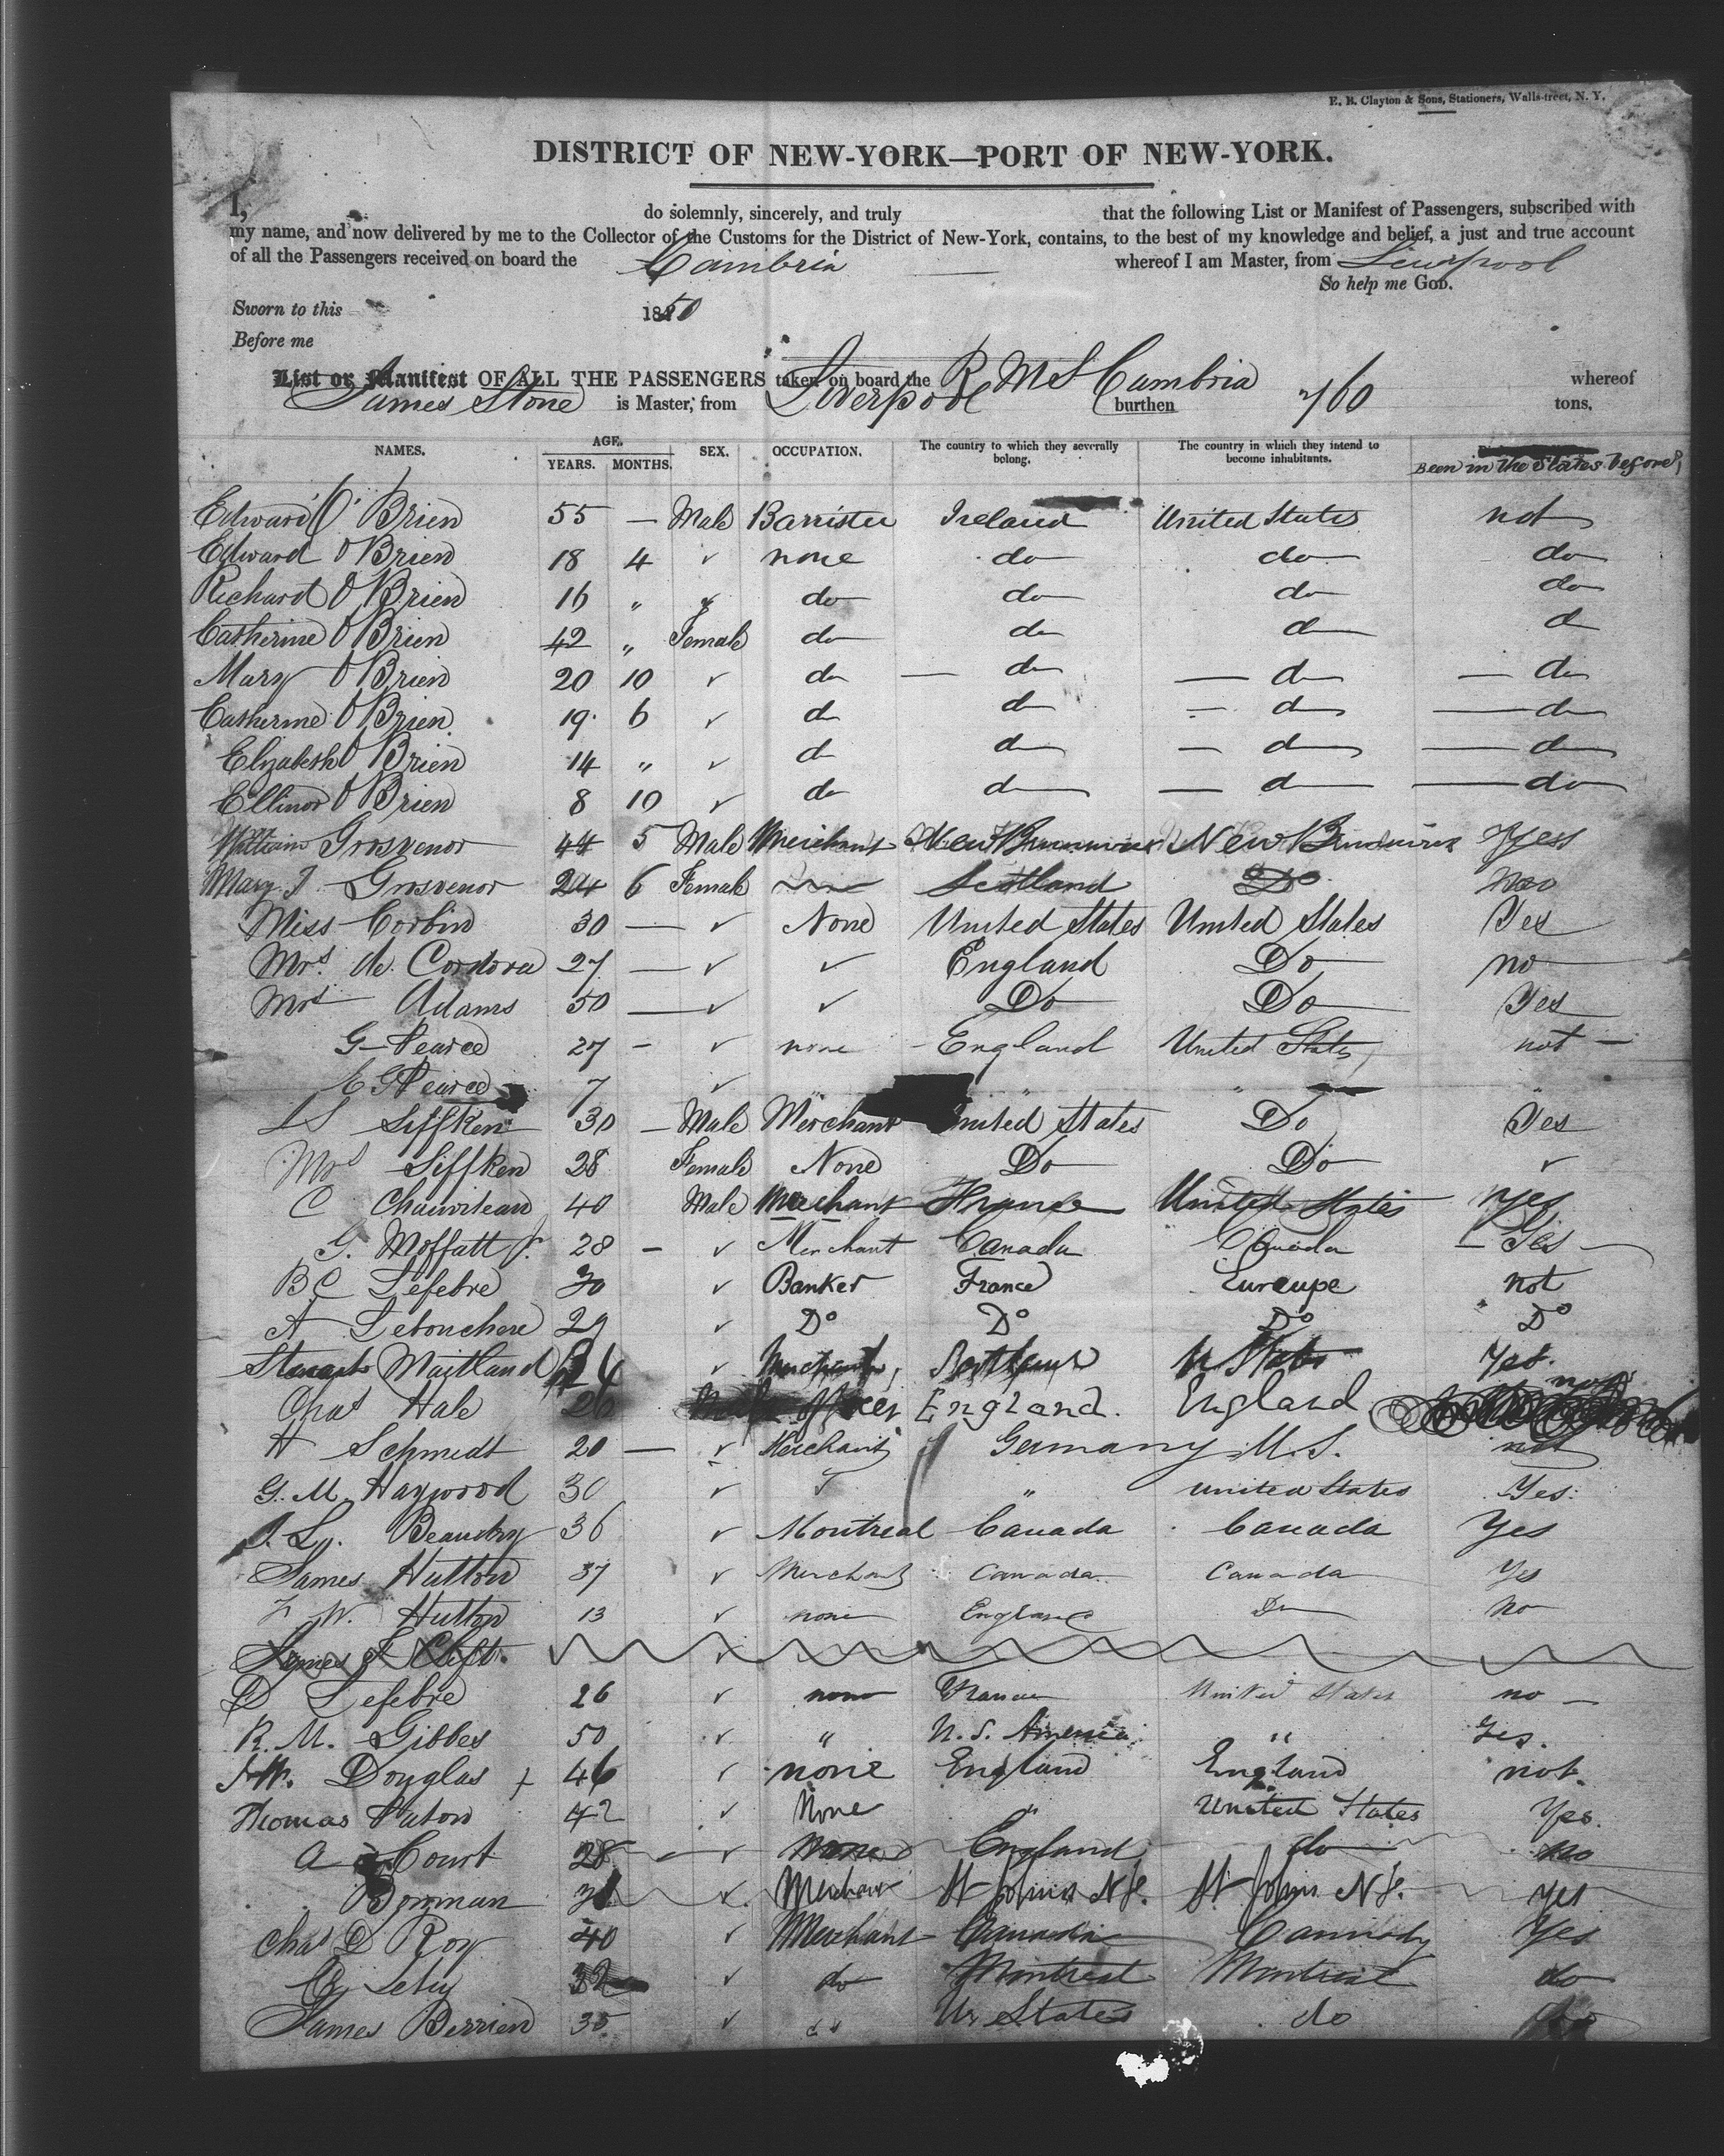 E. B. Clayton & Sons, Stationers, Walls-treet, N. Y.
DISTRICT OF NEW-YORK—PORT OF NEW-YORK.
I, do solemnly, sincerely, and truly that the following List or Manifest of Passengers, subscribed with
my name, and now delivered by me to the Collector of the Customs for the District of New-York, contains, to the best of my knowledge and belief, a just and true account
of all the Passengers received on board the Cambria whereof I am Master, from Liverpool
So help me GOD.
Sworn to this 1850
Before me
List or Manifest OF ALL THE PASSENGERS taken on board the R M S Cambria whereof
James Stone is Master, from Liverpool burthen 760 tons.
NAMES. AGE. YEARS. MONTHS. SEX. OCCUPATION. The country to which they severally belong. The country in which they intend to become inhabitants. Been in the States before,
Edward O'Brien 55 — Male Barrister Ireland United States not
Edward O Brien 18 4 ✓ none do do do
Richard O Brien 16 " " do do do do
Catherine O Brien 42 " Female do do do d
Mary O Brien 20 10 ✓ do — do — do — do
Catherine O Brien 19 6 ✓ do do — do — do
Elizabeth O Brien 14 " ✓ do do — do — do
Ellinor O Brien 8 10 ✓ do do — do — do
William Grosvenor 44 5 Male Merchant New Brunswick New Brunswick Yes
Mary J Grosvenor 24 6 Female Scotland Do No
Miss Corbin 30 — ✓ None United States United States Yes
Mrs. de Cordova 27 — ✓ ✓ England Do no
Mrs Adams 50 — ✓ ✓ Do Do Yes
G Pearce 27 - ✓ none England United States not —
E G Pearce 7 ✓ " " "
L S Siffken 30 — Male Merchant United States Do Yes
Mrs Siffken 28 Female None Do Do ✓
C Chauviteau 40 Male Merchant France United States Yes
G. Moffatt Jr. 28 - ✓ Merchant Canada Canada — Yes —
B C Lefebre 30 ✓ Banker France Eureupe not
A Letouchere 29 ✓ Do Do Do Do
Stewart Maitland 24 ✓ Merchant, Scotland U States Yes.
Chas Hale 26 Male officer England. England not
H Schmidt 20 — ✓ Merchant Germany U.S. not
G. M. Haywood 30 ✓ ✓ " United States Yes.
J. Ls. Beaudry 36 ✓ Montreal Canada Canada Yes
James Hutton 37 ✓ Merchant Canada Canada Yes
W. Hutton 13 ✓ none England Do No
James Clift ✓
D Lefebre 26 ✓ none France United States no —
R. M. Gibbes 50 ✓ " U. S. America " Yes.
J W. Douglas + 46 ✓ none England England not.
Thomas Paton 42 ✓ None " United States Yes.
A Court 28 — ✓ None England do no
Bowman 31 ✓ Merchant St Johns N F. St Johns N F. yes
Chas D Roy 40 ✓ Merchant Canada Cannady Yes
32 ✓ do Montreal Montreal do
James Berrien 35 ✓ " U. States do do